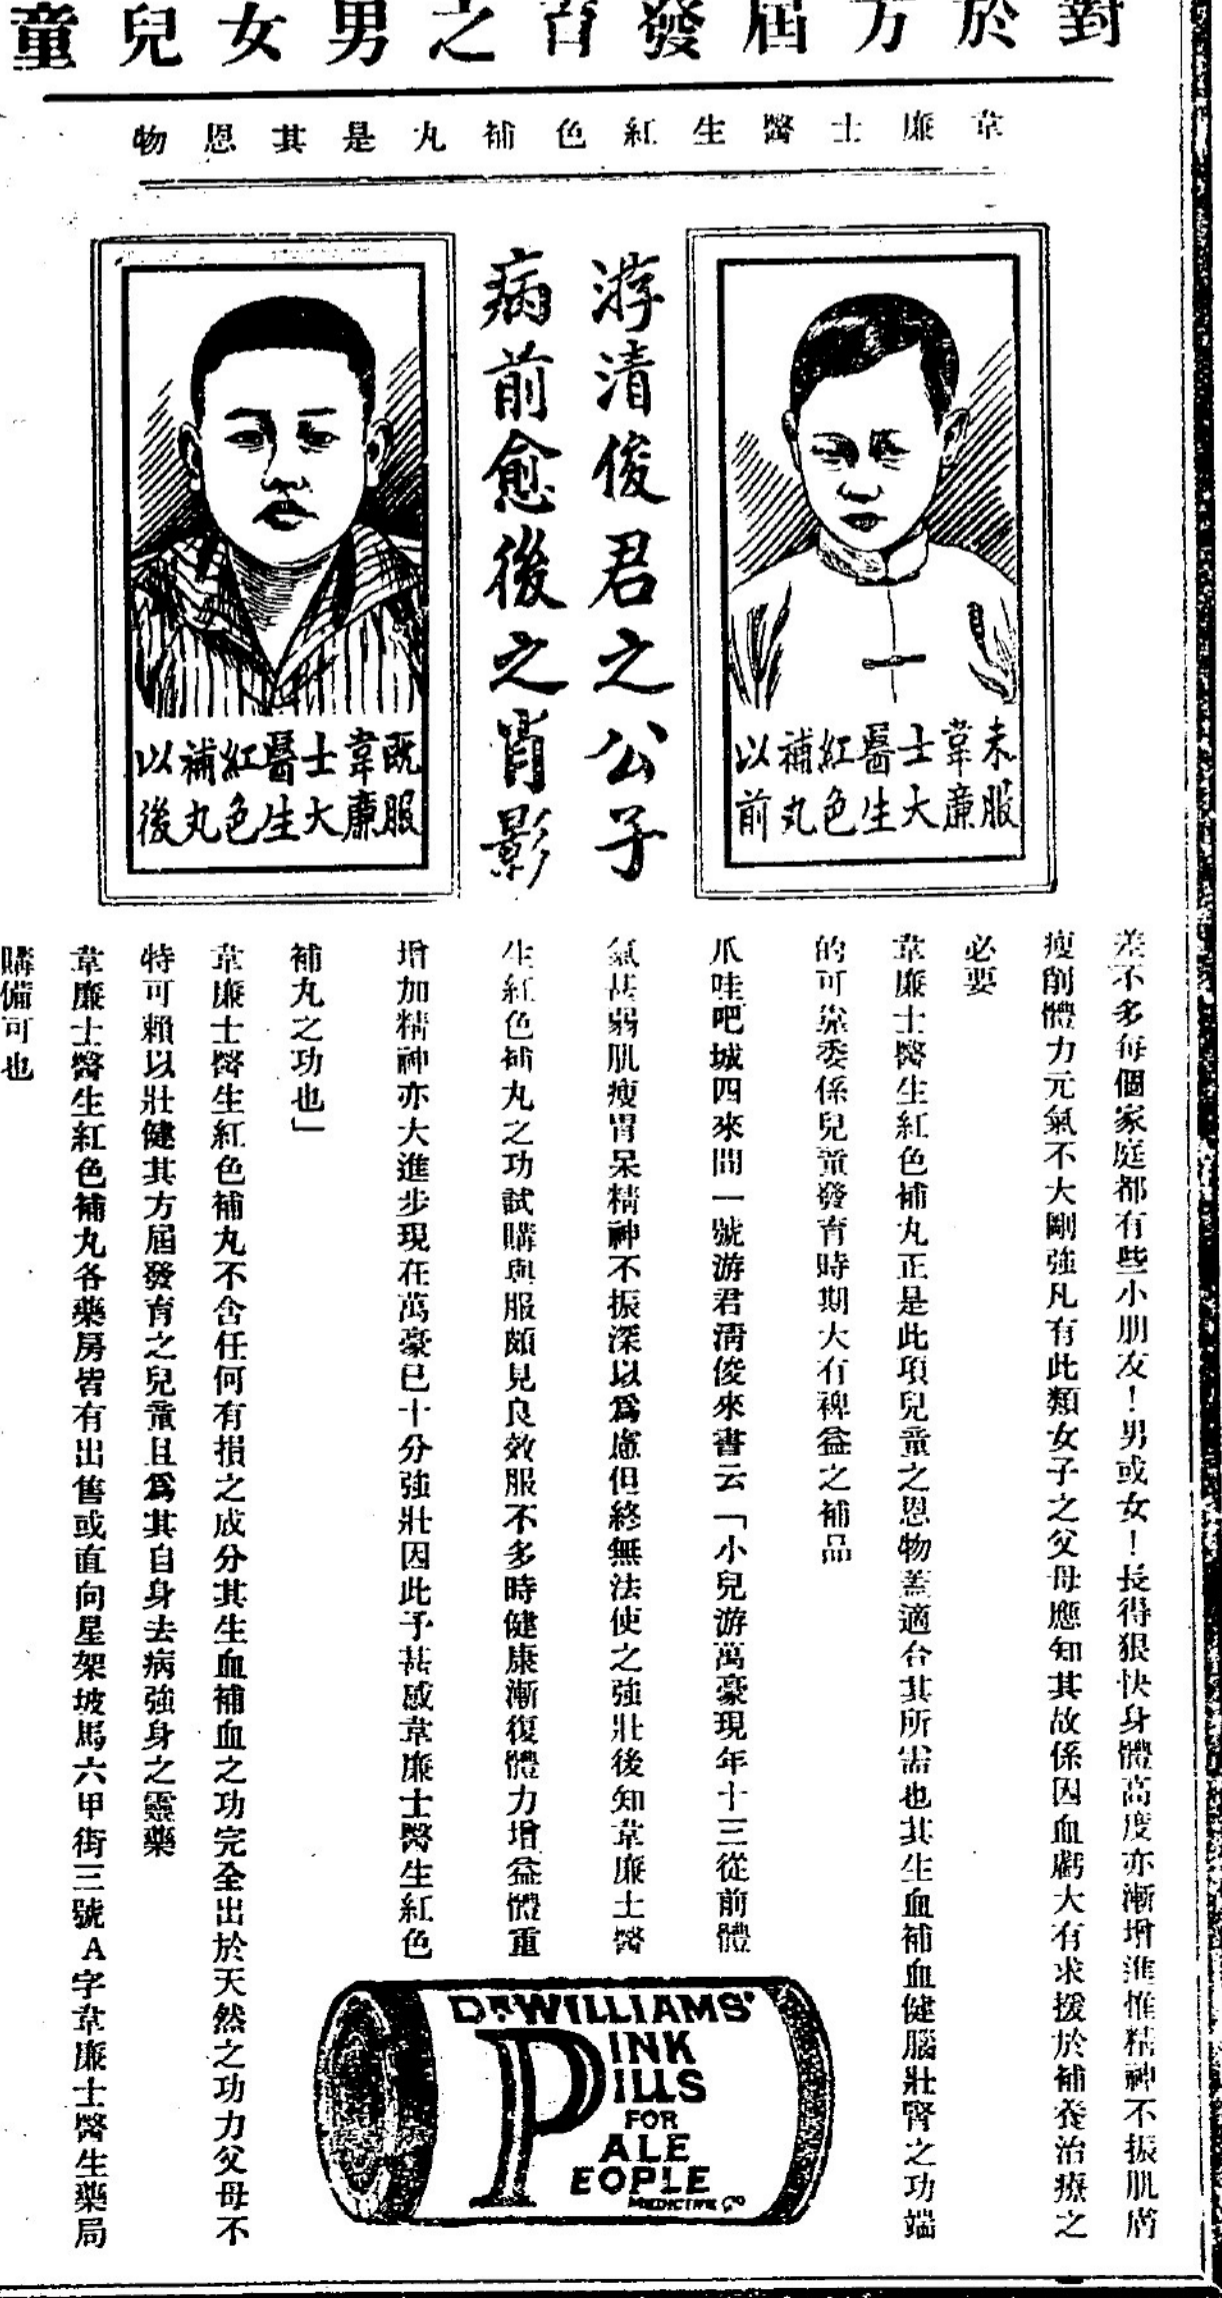 對於方屆發育之男女兒童
韋廉士醫生紅色補丸是其恩物
未服
韋廉
士大
醫生
紅色
補丸
以前
游清俊君之公子
病前愈後之肖影
既服
韋廉
士大
醫生
紅色
補丸
以後
差不多每個家庭都有些小朋友！男或女！長得狠快身體高度亦漸增進惟精神不振肌膚
瘦削體力元氣不大剛強凡有此類女子之父母應知其故係因血虧大有求援於補養治療之
必要
韋廉士醫生紅色補丸正是此項兒童之恩物蓋適合其所需也其生血補血健腦壯腎之功端
的可靠委係兒童發育時期大有裨益之補品
爪哇吧城四來間一號游君清俊來書云「小兒游萬豪現年十三從前體
氣甚弱肌瘦胃呆精神不振深以爲慮但終無法使之強壯後知韋廉士醫
生紅色補丸之功試購與服頗見良效服不多時健康漸復體力增益體重
增加精神亦大進步現在萬豪已十分強壯因此予甚感韋廉士醫生紅色
補丸之功也」
韋廉士醫生紅色補丸不含任何有損之成分其生血補血之功完全出於天然之功力父母不
特可賴以壯健其方屆發育之兒童且爲其自身去病強身之靈藥
韋廉士醫生紅色補丸各藥房皆有出售或直向星架坡馬六甲街三號A字韋廉士醫生藥局
購備可也
DR. WILLIAMS'
PINK
PILLS
FOR
PALE
PEOPLE
MEDICINE CO